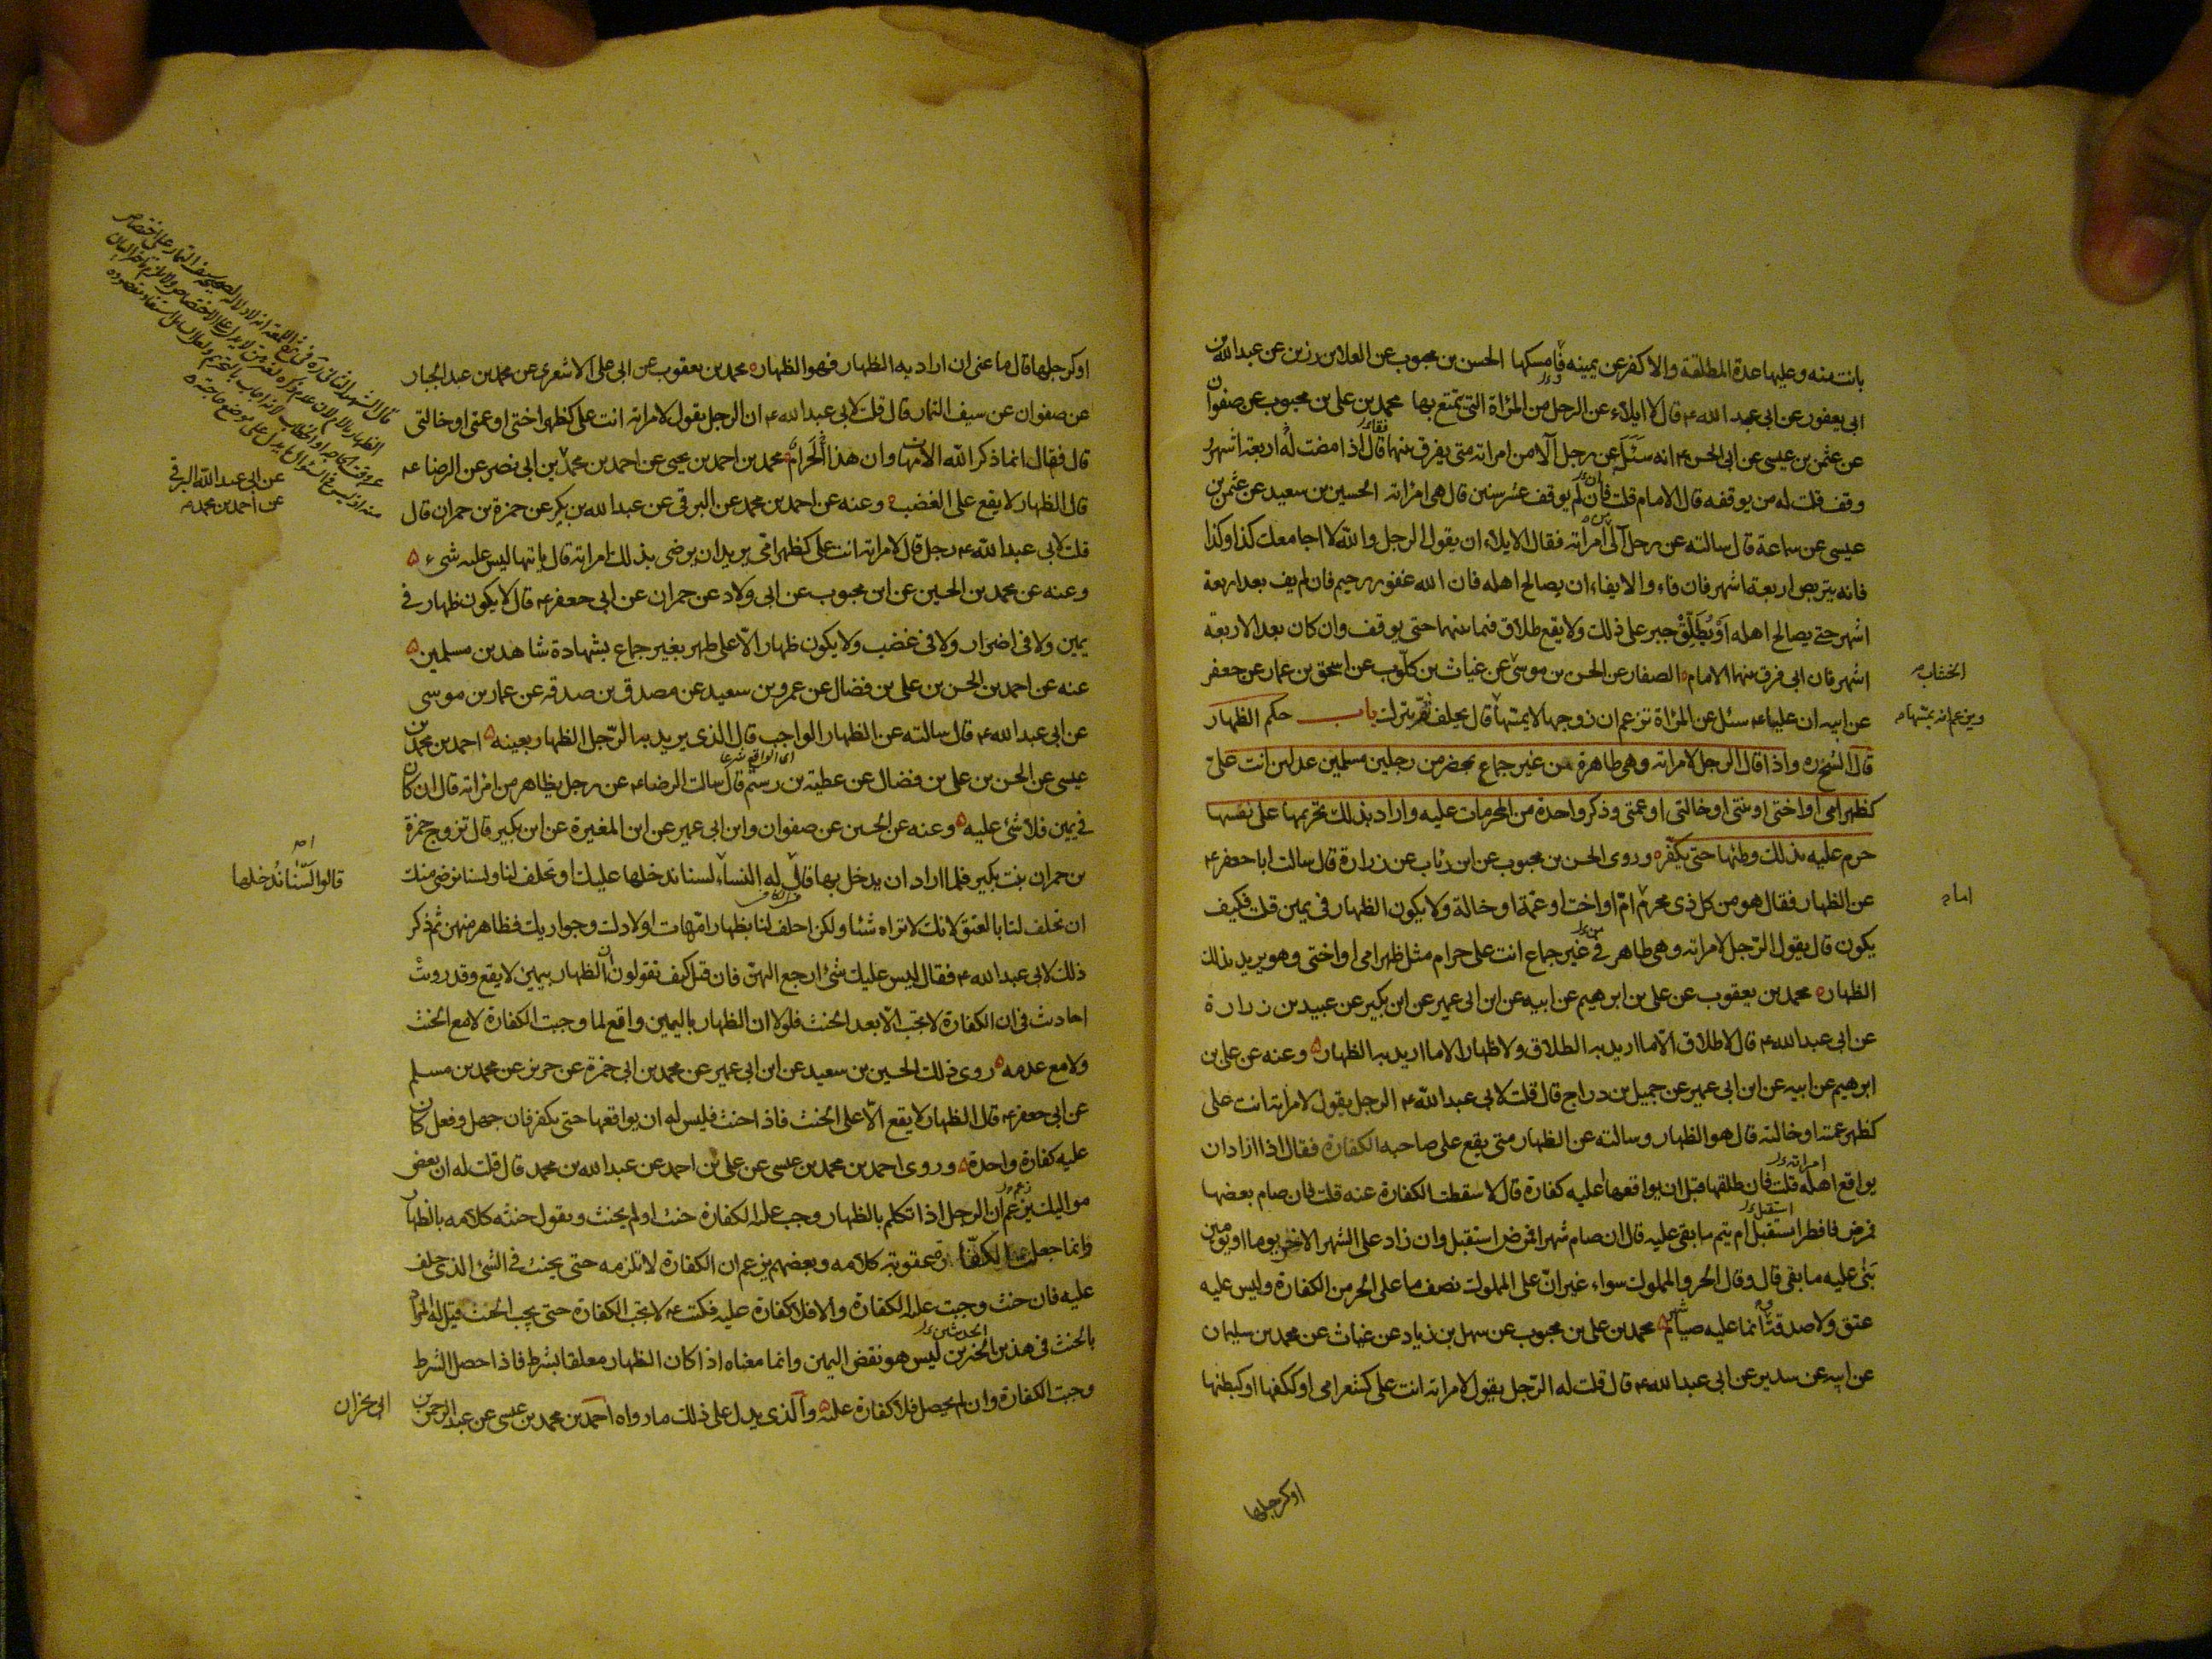 بانت منه وعليها عدة المطلقة والا كفر عن يمينه فامسكها الحسن بن محبوب عن العلا بن رزين عن عبدالله بن
ابى يعفور عن ابى عبد الله ع قال لا ايلاء عن الرجل من المراة التى تمتع بها محمد بن على بن محبوب عن صفوان
عن عثمن بن عيسى عن ابى الحسن ع انه سئل عن رجل آلا من امراته متى يفرق بينهما قال اذا مضت له اربعة اشهر
وقف قلت له من يوقفه قال الامام قلت فان لم يوقف عشر سنين قال هى امراته الحسين بن سعيد عن عثمن بن
عيسى عن سماعة قال سالته عن رجل آلى من امراته فقال الايلاء ان يقول الرجل والله لا اجامعك كذا وكذا
فانه يتربص اربعة اشهر فان فاء والايفاء ان يصالح اهله فان الله غفور رحيم فان لم يف بعد اربعة
اشهر حتى يصالح اهله او يطلق جبر على ذلك ولا يقع طلاق فيما بينهما حتى يوقف وان كان بعد الاربعة
اشهر فان ابى فرق بينهما الامام الصفار عن الحسن بن موسى عن غياث بن كلوب عن اسحق بن عمار عن جعفر
الخشاب
عن ابيه ان عليا ع سئل عن المراة تزعم ان زوجها لا يمسها قال يحلف ثم يترك باب حكم الظهار
ويزعم انه يمسها
قال الشيخ ره واذا قال الرجل لامراته وهى طاهرة من غير جماع بمحضر من رجلين مسلمين عدلين انت على
كظهر امى او اختى او بنتى او خالتى او عمتى وذكر واحدة من المحرمات عليه واراد بذلك تحريمها على نفسها
حرم عليه بذلك وطئها حتى يكفر ه وروى الحسن بن محبوب عن ابن رئاب عن زرارة قال سالت ابا جعفر ع
عن الظهار فقال هو من كل ذى محرم ام او اخت او عمة او خالة ولا يكون الظهار فى يمين قلت فكيف
يكون قال يقول الرجل لامراته وهى طاهر فى غير جماع انت على حرام مثل ظهر امى او اختى وهو يريد بذلك
الظهار ه محمد بن يعقوب عن على بن ابرهيم عن ابيه عن ابن ابى عمير عن ابن بكير عن عبيد بن زرارة
عن ابى عبد الله ع قال لا طلاق الا ما اريد به الطلاق ولا ظهار الا ما اريد به الظهار ه وعنه عن على بن
ابرهيم عن ابيه عن ابن ابى عمير عن جميل بن دراج قال قلت لابى عبد الله ع الرجل يقول لامراته انت على
كظهر عمته او خالته قال هو الظهار وسالته عن الظهار متى يقع على صاحبه الكفارة فقال اذا اراد ان
يواقع اهله قلت فان طلقها قبل ان يواقعها اعليه كفارة قال لا سقطت الكفارة عنه قلت فان صام بعضها
امراته
فمرض فافطر استقبل ام يتم ما بقى عليه قال ان صام شهرا فمرض استقبل وان زاد على الشهر الاخر يوما او يومين
بنى عليه ما بقى قال وقال الحر والمملوك سواء غير ان على المملوك نصف ما على الحر من الكفارة وليس عليه
عتق ولا صدقة انما عليه صيام شهر محمد بن على بن محبوب عن سهل بن زياد عن غياث عن محمد بن سليمان
عن ابيه عن سدير عن ابى عبد الله ع قال قلت له الرجل يقول لامراته انت على كشعر امى او ككفها او كبطنها
او كرجلها
او كرجلها قال ما عنى ان اراد به الظهار فهو الظهار ه محمد بن يعقوب عن ابى على الاشعرى عن محمد بن عبد الجبار
عن صفوان عن سيف التمار قال قلت لابى عبد الله ع ان الرجل يقول لامراته انت على كظهر اختى او عمتى او خالتى
قال فقال انما ذكر الله الامهات وان هذا لحرام محمد بن احمد بن يحيى عن احمد بن محمد بن ابى نصر عن الرضا ع
قال الظهار لا يقع على الغضب ه وعنه عن احمد بن محمد عن البرقى عن عبد الله بن بكير عن حمزة بن حمران قال
عن ابى عبد الله البرقى
عن احمد بن محمد
قلت لابى عبد الله ع رجل قال لامراته انت على كظهر امى يريد ان يرضى بذلك امراته قال ياتيها ليس عليه شىء ه
وعنه عن محمد بن الحسين عن ابن محبوب عن ابى ولاد عن حمران عن ابى جعفر ع قال لا يكون ظهار فى
يمين ولا فى اضرار ولا فى غضب ولا يكون ظهار الا على طهر بغير جماع بشهادة شاهدين مسلمين ه
عنه عن احمد بن الحسن بن على بن فضال عن عمرو بن سعيد عن مصدق بن صدقه عن عمار بن موسى
عن ابى عبد الله ع قال سالته عن الظهار الواجب قال الذى يريد به الرجل الظهار بعينه ه احمد بن محمد بن
اى الواقع شرعا
عيسى عن الحسن بن على بن فضال عن عطية بن رستم قال سالت الرضا ع عن رجل يظاهر من امراته قال ان كان
فى يمين فلا شئ عليه ه وعنه عن الحسين عن صفوان وابن ابى عمير عن ابن المغيرة عن ابن بكير قال تزوج حمزة
بن حمران بنت بكير فلما اراد ان يدخل بها قال له النساء لسنا ندخلها عليك او تحلف لنا ولسنا نرضى منك
قالوا لسنا ندخلها
ان تحلف لنا بالعتق لانك لا تراه شئا ولكن احلف لنا بظهار امهات اولادك وجواريك فظاهر منهن ثم ذكر
ذلك لابى عبد الله ع فقال ليس عليك شئ ارجع اليهن فان قيل كيف تقولون ان الظهار بيمين لا يقع وقد رويت
احاديث فى ان الكفارة لا تجب الا بعد الحنث فلولا ان الظهار باليمين واقع لما وجبت الكفارة لا مع الحنث
ولا مع عدمه ه روى ذلك الحسين بن سعيد عن ابن ابى عمير عن محمد بن ابى حمزة عن حريز عن محمد بن مسلم
عن ابى جعفر ع قال الظهار لا يقع الا على الحنث فاذا حنث فليس له ان يواقعها حتى يكفر فان جهل وفعل كان
عليه كفارة واحدة ه وروى احمد بن محمد بن عيسى عن على بن احمد عن عبد الله بن محمد قال قلت له ان بعض
مواليك يزعم ان الرجل اذا تكلم بالظهار وجب عليه الكفارة حنث او لم يحنث ويقول حنثه كلامه بالظهار
وانما جعلت الكفارة عقوبة كلامه وبعضهم يزعم ان الكفارة لا تلزمه حتى يحنث فى الشئ الذى حلف
عليه فان حنث وجبت عليه الكفارة والا فلا كفارة عليه فكتب ع لا تجب الكفارة حتى يجب الحنث قيل له المراد
بالحنث فى هذين الخبرين ليس هو نقض اليمين وانما معناه اذا كان الظهار معلقا بشرط فاذا حصل الشرط
وجبت الكفارة وان لم يحصل فلا كفارة عليه ه والذى يدل على ذلك ما رواه احمد بن محمد بن عيسى عن عبد الرحمن بن
ابى نجران